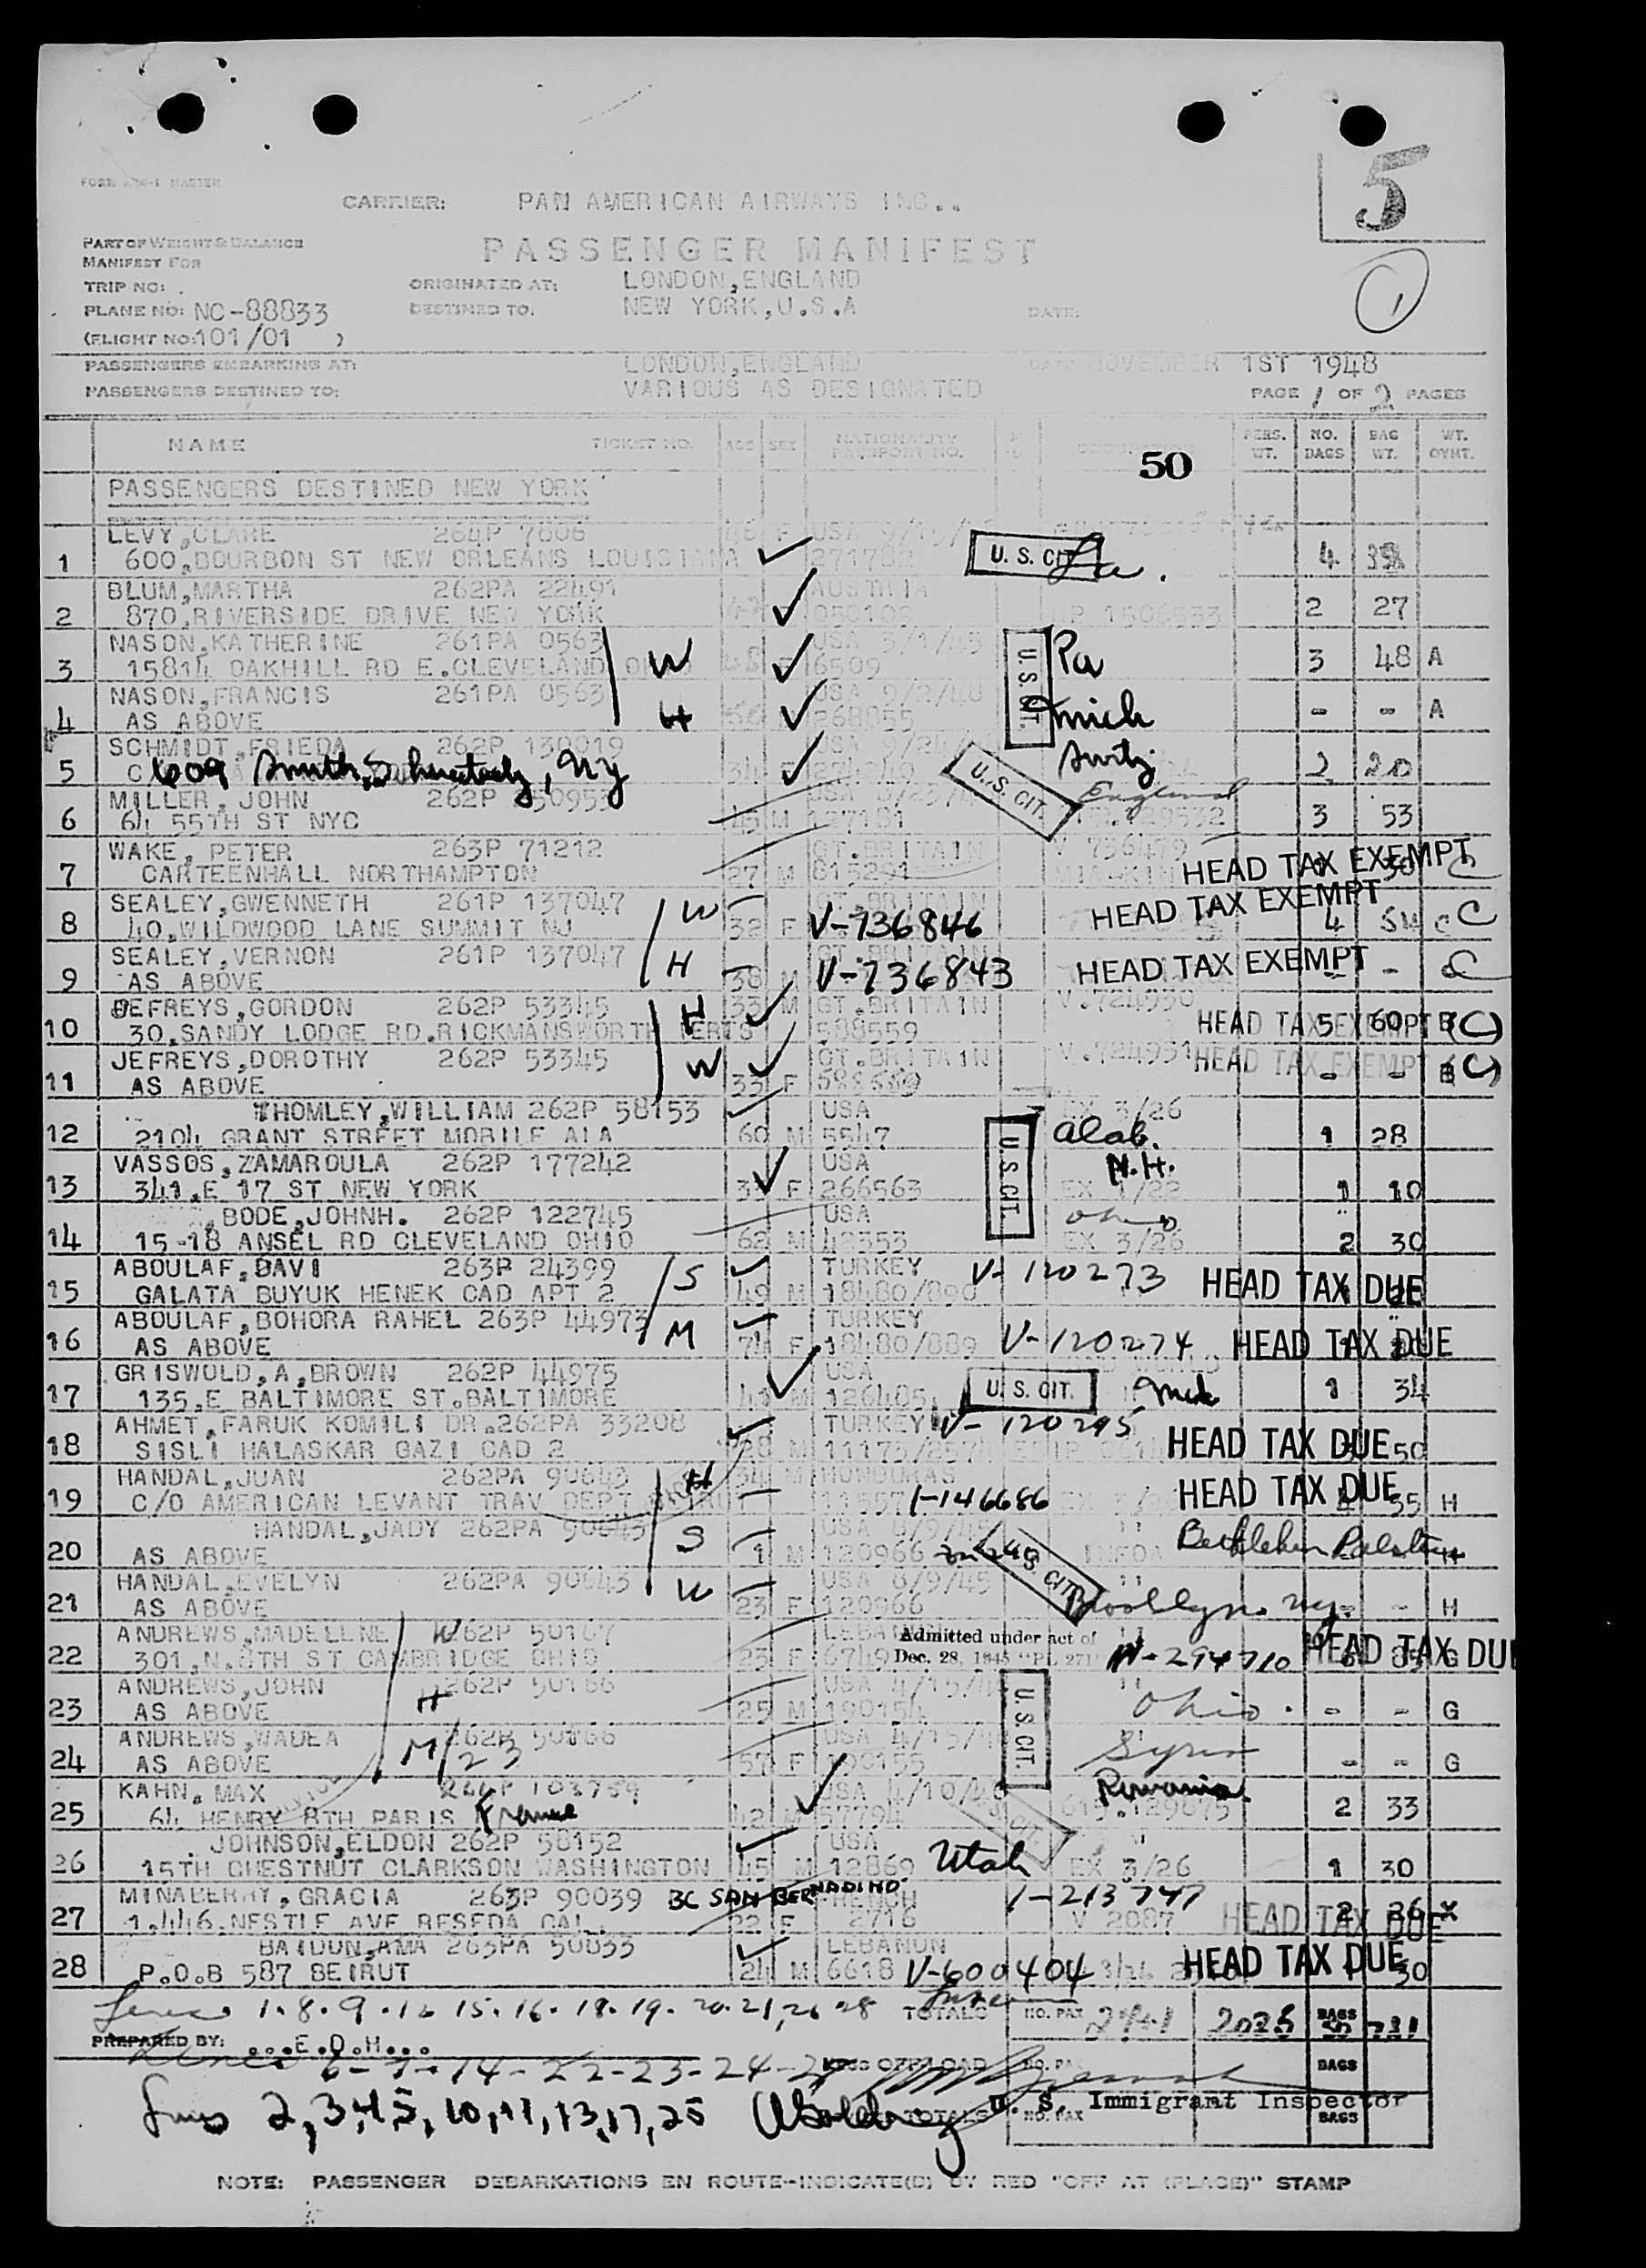 5
FORM
CARRIER: PAN AMERICAN AIRWAYS INC..
PART OF WEIGHT & BALANCE
MANIFEST FOR
PASSENGER MANIFEST
1
TRIP NO: .
ORIGINATED AT: LONDON,ENGLAND
PLANE NO: NC-88833
DESTINED TO. NEW YORK,U.S.A
DATE:
(FLIGHT NO:101/01 )
PASSENGERS EMBARKING AT: LONDON,ENGLAND DATE NOVEMBER 1ST 1948
PASSENGERS DESTINED TO: VARIOUS AS DESIGNATED PAGE 1 OF 2 PAGES
NAME TICKET NO. AGE SEX NATIONALITY PASSPORT NO. PERS. WT. NO. BAGS BAG WT. WT. CYHT.
50
PASSENGERS DESTINED NEW YORK
LEVY,CLARE 264P 7606 F USA
1 600,BOURBON ST NEW ORLEANS LOUISIANA U. S. CIT La. 4
BLUM,MARTHA 262PA 22491 AUSTRIA
2 870,RIVERSIDE DRIVE NEW YORK 2 27
NASON,KATHERINE 261PA 0563 USA
3 15814 OAKHILL RD E.CLEVELAND W 6509 U.S.CIT. Pa 3 48 A
NASON,FRANCIS 261PA 0563 USA 9/2/48
4 AS ABOVE H 268855 Mich - - A
SCHMIDT,FRIEDA 262P 130919 USA
5 609 Smith, Schenectady, NY Switz. 2 20
MILLER, JOHN 262P U.S. CIT. England
6 64 55TH ST NYC 45 M 127181 3 53
WAKE, PETER 263P 71212 GT.BRITAIN V 736479
7 CARTEENHALL NORTHAMPTON 27 M 815291 HEAD TAX EXEMPT C
SEALEY,GWENNETH 261P 137047 W GT.BRITAIN
8 40,WILDWOOD LANE SUMMIT NJ 32 F V-736846 HEAD TAX EXEMPT 4 C
SEALEY,VERNON 261P 137047 GT.BRITAIN
9 AS ABOVE H 38 M V-736843 HEAD TAX EXEMPT - C
JEFREYS,GORDON 262P 53345 H 33 M GT.BRITAIN V.724930
10 30,SANDY LODGE RD.RICKMANSWORTH HERTS 588559 HEAD TAX EXEMPT 5 60 (C)
JEFREYS,DOROTHY 262P 53345 W GT.BRITAIN V.724931 HEAD TAX EXEMPT (C)
11 AS ABOVE 33 F - -
THOMLEY,WILLIAM 262P 58153 USA EX 3/26
12 2104 GRANT STREET MOBILE ALA 60 M 5547 U.S.CIT. Alab. 1 28
VASSOS,ZAMAROULA 262P 177242 USA N.H.
13 341.E 17 ST NEW YORK F 266563 EX 1/22 1 10
BODE,JOHNH. 262P 122745 USA Ohio
14 15-18 ANSEL RD CLEVELAND OHIO 62 M 42353 EX 3/26 2 30
ABOULAF,DAVI 263P 24399 S TURKEY V-120273
15 GALATA BUYUK HENEK CAD APT 2 49 M 18480/890 HEAD TAX DUE
ABOULAF,BOHORA RAHEL 263P 44973 M TURKEY
16 AS ABOVE 74 F 18480/889 V-120274 HEAD TAX DUE
GRISWOLD,A,BROWN 262P 44975 USA
17 135.E BALTIMORE ST.BALTIMORE 41 M 126485 U. S. CIT. 1 34
AHMET,FARUK KOMILI DR.262PA 33208 TURKEY V-120295
18 SISLI HALASKAR GAZI CAD 2 28 M HEAD TAX DUE 50
HANDAL,JUAN 262PA 90643 H 34 M HONDURAS
19 C/O AMERICAN LEVANT TRAV DEPT 1-146686 HEAD TAX DUE 55 H
HANDAL,JADY 262PA 90643 S USA
20 AS ABOVE 1 M 120966 Bethlehem Palestine H
HANDAL,EVELYN 262PA 90643 W USA 8/9/45
21 AS ABOVE 23 F 120966 U.S. CIT. Brooklyn. NY. - H
ANDREWS,MADELLNE W 262P 50167 LEBANON Admitted under act of
22 301.N.8TH ST CAMBRIDGE OHIO 23 F 6749 Dec. 28, 1945 "PL 271" HEAD TAX DUE G
ANDREWS,JOHN 262P 50166 USA
23 AS ABOVE H 25 M 190154 U.S.CIT. Ohio. - - G
ANDREWS,WADEA 262P 50166 USA
24 AS ABOVE M/23 57 F 190155 Syria - - G
KAHN, MAX 264P 103759 USA 4/10/48 Romania.
25 64 HENRY 8TH PARIS France 42 M 57794 2 33
JOHNSON,ELDON 262P 58152 USA
26 15TH CHESTNUT CLARKSON WASHINGTON 45 M 12869 Utah EX 3/26 1 30
MINABERRY, GRACIA 263P 90039 BC SAN BERNADINO FRENCH 1-213747
27 1.446.NESTLE AVE RESEDA CAL. 22 F 2716 V 2087 HEAD TAX DUE 2 26 X
BAIDUN,AMA 263PA 50833 LEBANON
28 P.O.B 587 BEIRUT 24 M 6618 V-600404 3/26 HEAD TAX DUE 30
Lines 1. 8. 9. 12 15. 16. 18. 19. 20. 21, 26 28 TOTALS NO. PAX 2025 BAGS
PREPARED BY: ...E.D.H...
Lines 6-7-14-22-23-24-27 OFFLOAD NO. PAX BAGS
Lines 2,3,4,5,10,11,13,17,25 TOTALS NO. PAX U. S. Immigrant Inspector BAGS
NOTE: PASSENGER DEBARKATIONS EN ROUTE--INDICATE(D) BY RED "OFF AT (PLACE)" STAMP